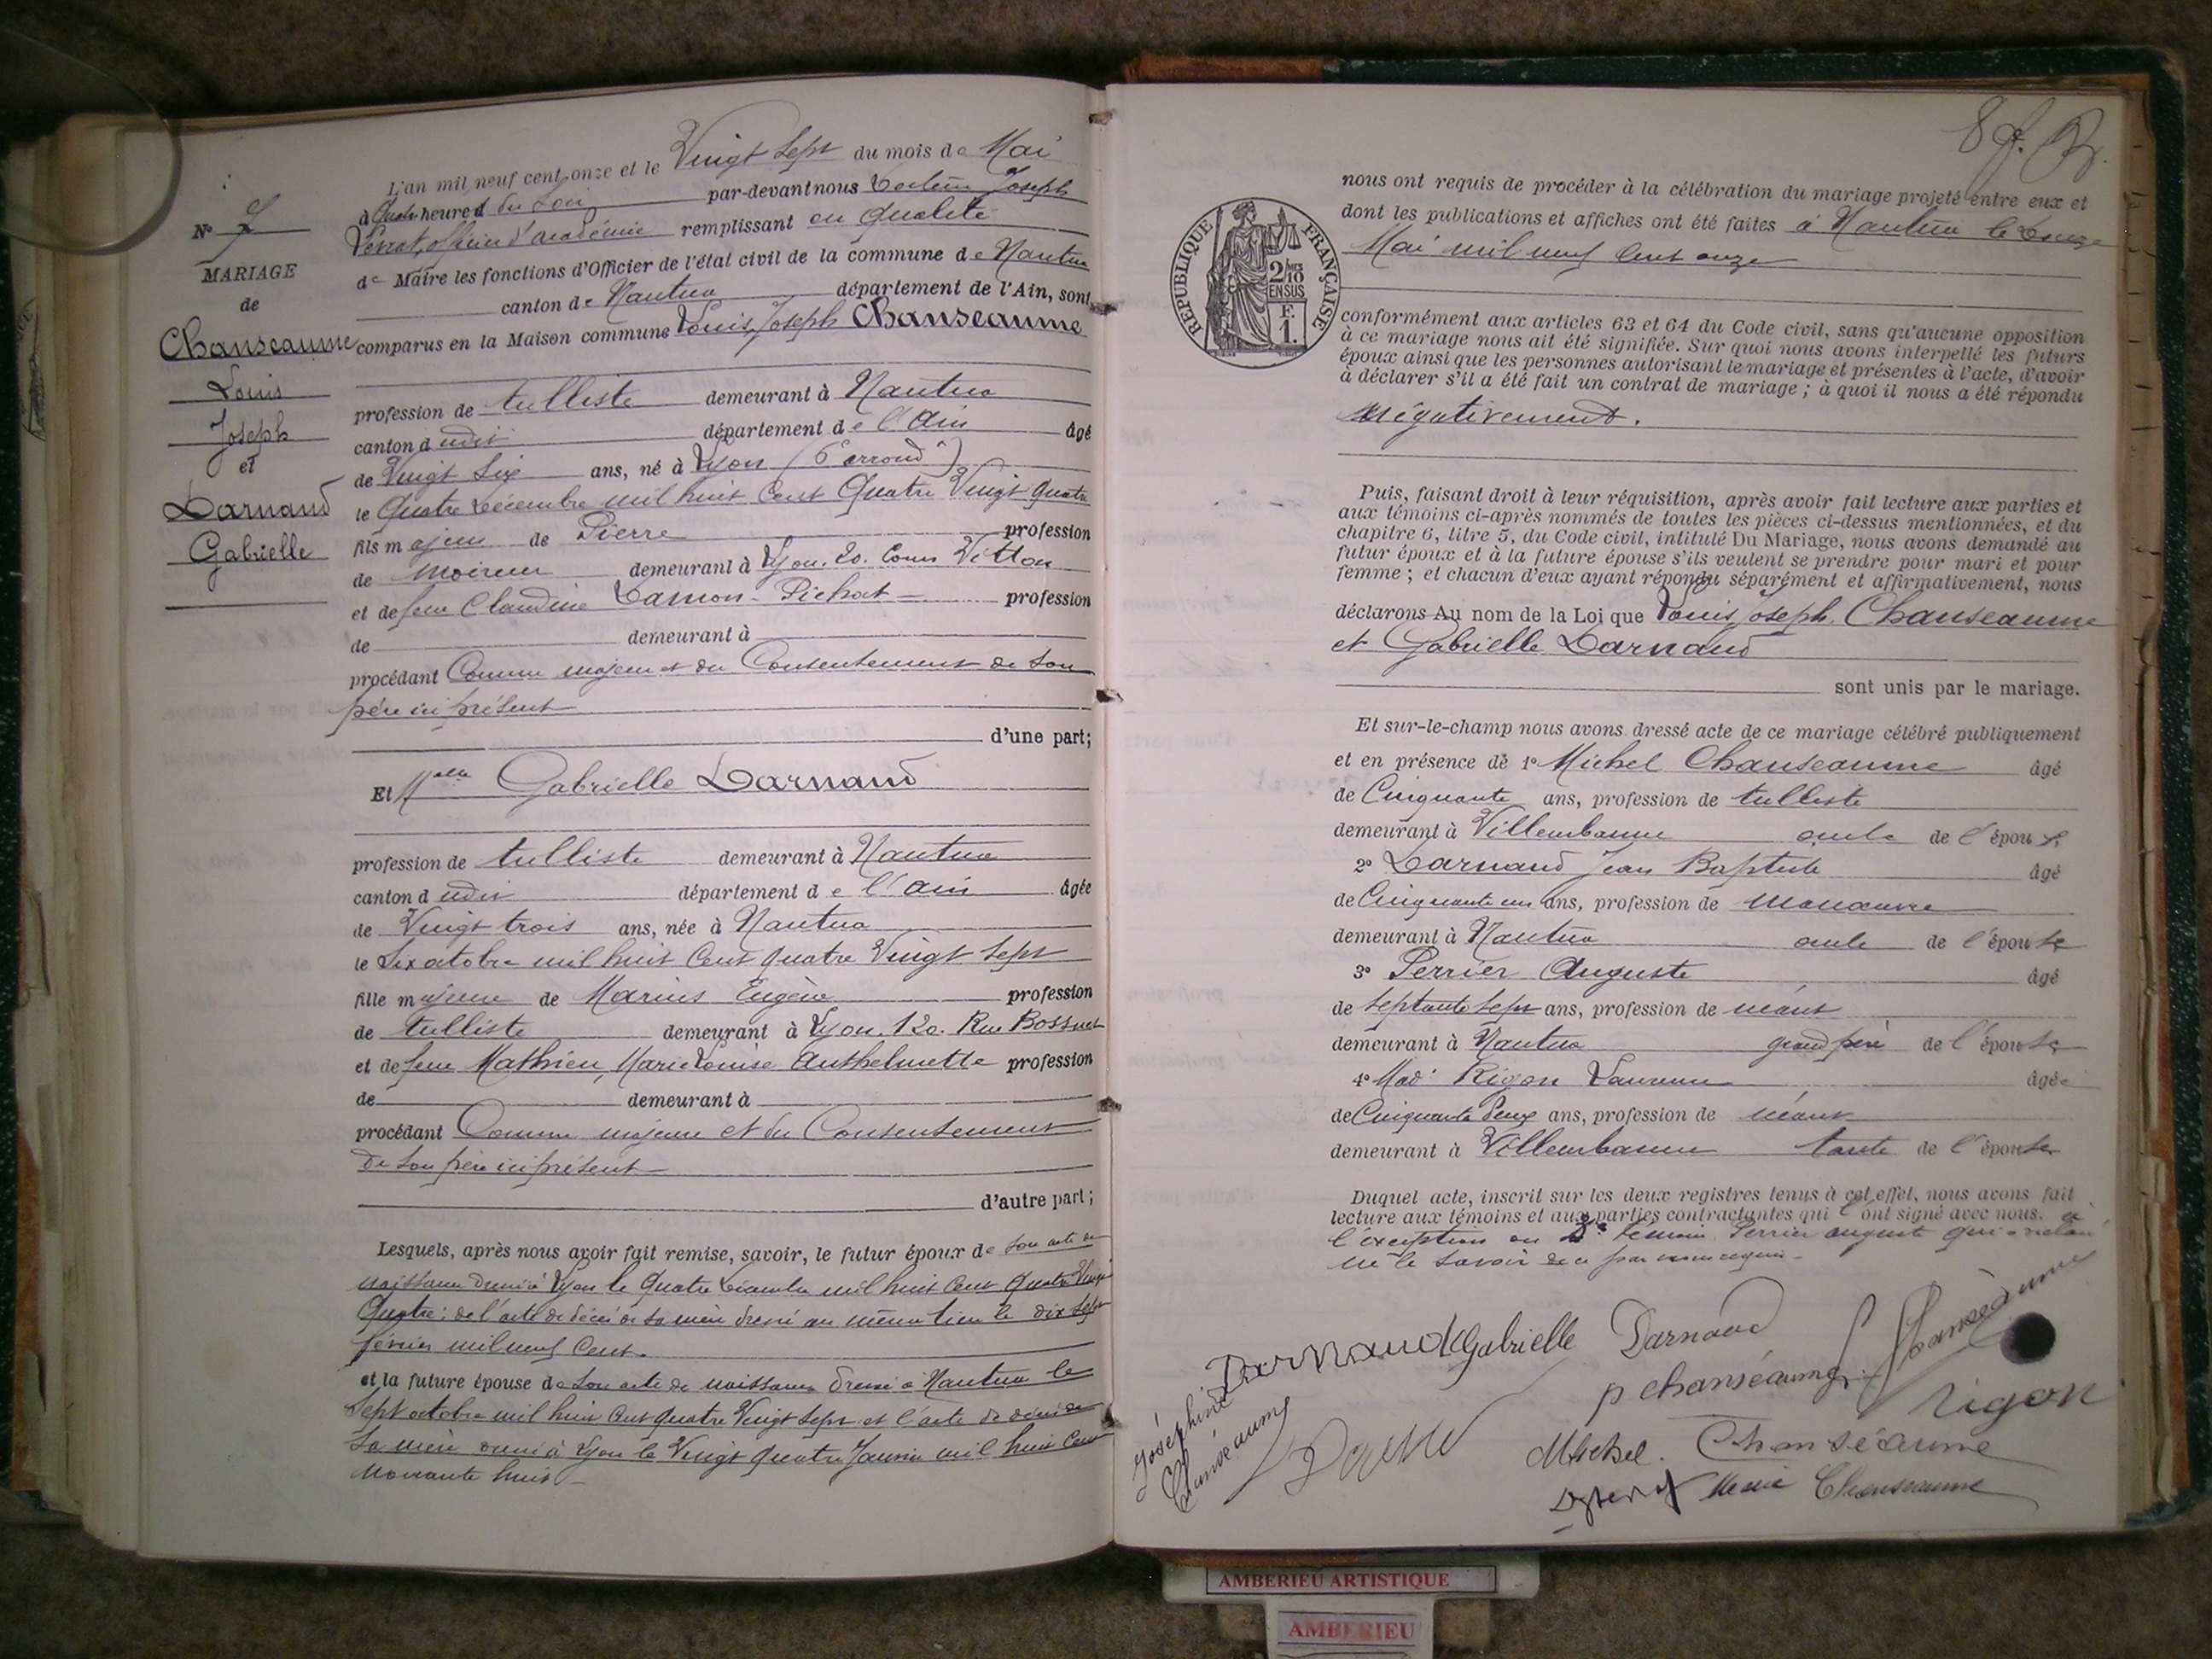 N° 7
MARIAGE
de
Chanseaume
Louis
Joseph
et
Darnaud
Gabrielle
L'an mil neuf cent onze et le Vingt Sept du mois de Mai
à Quatre heures du Soir par-devant nous Docteur Joseph
officier d'académie remplissant en qualité
de Maire les fonctions d'Officier de l'état civil de la commune de Nantua
canton de Nantua département de l'Ain, sont
comparus en la Maison commune Louis, Joseph Chanseaume
profession de tulliste demeurant à Nantua
canton dudit département de l'Ain âgé
de Vingt Six ans, né à Lyon (6e arrondt)
le Quatre Décembre mil huit Cent Quatre Vingt Quatre
fils majeur de Pierre profession
de Moireur demeurant à Lyon. 20. Cours Vitton
et de feue Claudine Damon-Pichat profession
de demeurant à
procédant Comme majeur et du Consentement de Son
père ici présent
d'une part;
Et Melle Gabrielle Darnaud
profession de tulliste demeurant à Nantua
canton dudit département de l'Ain âgée
de Vingt trois ans, née à Nantua
le Six octobre mil huit Cent quatre Vingt Sept
fille majeure de Marius Eugène profession
de tulliste demeurant à Lyon. 120. Rue Bossuet
et de feue Mathieu, Marie Louise Anthelmette profession
de demeurant à
procédant Comme majeure et du Consentement
de Son père ici présent
d'autre part;
Lesquels, après nous avoir fait remise, savoir, le futur époux de Son acte de
naissance dressé à Lyon le Quatre Décembre mil huit Cent Quatre Vingt
Quatre: de l'acte de décès de Sa mère dressé au même lieu le dix Sept
février mil neuf Cent.
et la future épouse de Son acte de naissance dressé à Nantua le
Sept octobre mil huit Cent quatre Vingt Sept et l'acte de décès de
Sa mère dressé à Lyon le Vingt quatre Janvier mil huit Cent
Nonante huit
8 f.
RÉPUBLIQUE FRANÇAISE
2/10
EN SUS
F.
1.
nous ont requis de procéder à la célébration du mariage projeté entre eux et
dont les publications et affiches ont été faites à Nantua le
Mai mil neuf Cent onze
conformément aux articles 63 et 64 du Code civil, sans qu'aucune opposition
à ce mariage nous ait été signifiée. Sur quoi nous avons interpellé les futurs
époux ainsi que les personnes autorisant le mariage et présentes à l'acte, d'avoir
à déclarer s'il a été fait un contrat de mariage; à quoi il nous a été répondu
négativement.
Puis, faisant droit à leur réquisition, après avoir fait lecture aux parties et
aux témoins ci-après nommés de toutes les pièces ci-dessus mentionnées, et du
chapitre 6, titre 5, du Code civil, intitulé Du Mariage, nous avons demandé au
futur époux et à la future épouse s'ils veulent se prendre pour mari et pour
femme; et chacun d'eux ayant répondu séparément et affirmativement, nous
déclarons Au nom de la Loi que Louis, Joseph. Chanseaume
et Gabrielle Darnaud
sont unis par le mariage.
Et sur-le-champ nous avons dressé acte de ce mariage célébré publiquement
et en présence de 1° Michel Chanseaume âgé
de Cinquante ans, profession de tulliste
demeurant à Villeurbanne oncle de l'époux
2° Darnaud Jean Baptiste âgé
de Cinquante un ans, profession de Manœuvre
demeurant à Nantua oncle de l'épouse
3° Perrier Auguste âgé
de Septante Sept ans, profession de néant
demeurant à Nantua grand père de l'épouse
4° Made Rigon Laurence âgée
de Cinquante Deux ans, profession de néant
demeurant à Villeurbanne tante de l'épouse
Duquel acte, inscrit sur les deux registres tenus à cet effet, nous avons fait
lecture aux témoins et aux parties contractantes qui l'ont signé avec nous. à
l'exception du 3e témoin Perrier auguste qui a décla
ré ne le savoir de ce par nous requis.
Darnaud Gabrielle Darnaud Chanseaume
p chanséaume
Rigon
Joséphine
Chanséaume
Michel. Chanséaume
Marie Chanseaume
AMBERIEU ARTISTIQUE
AMBERIEU